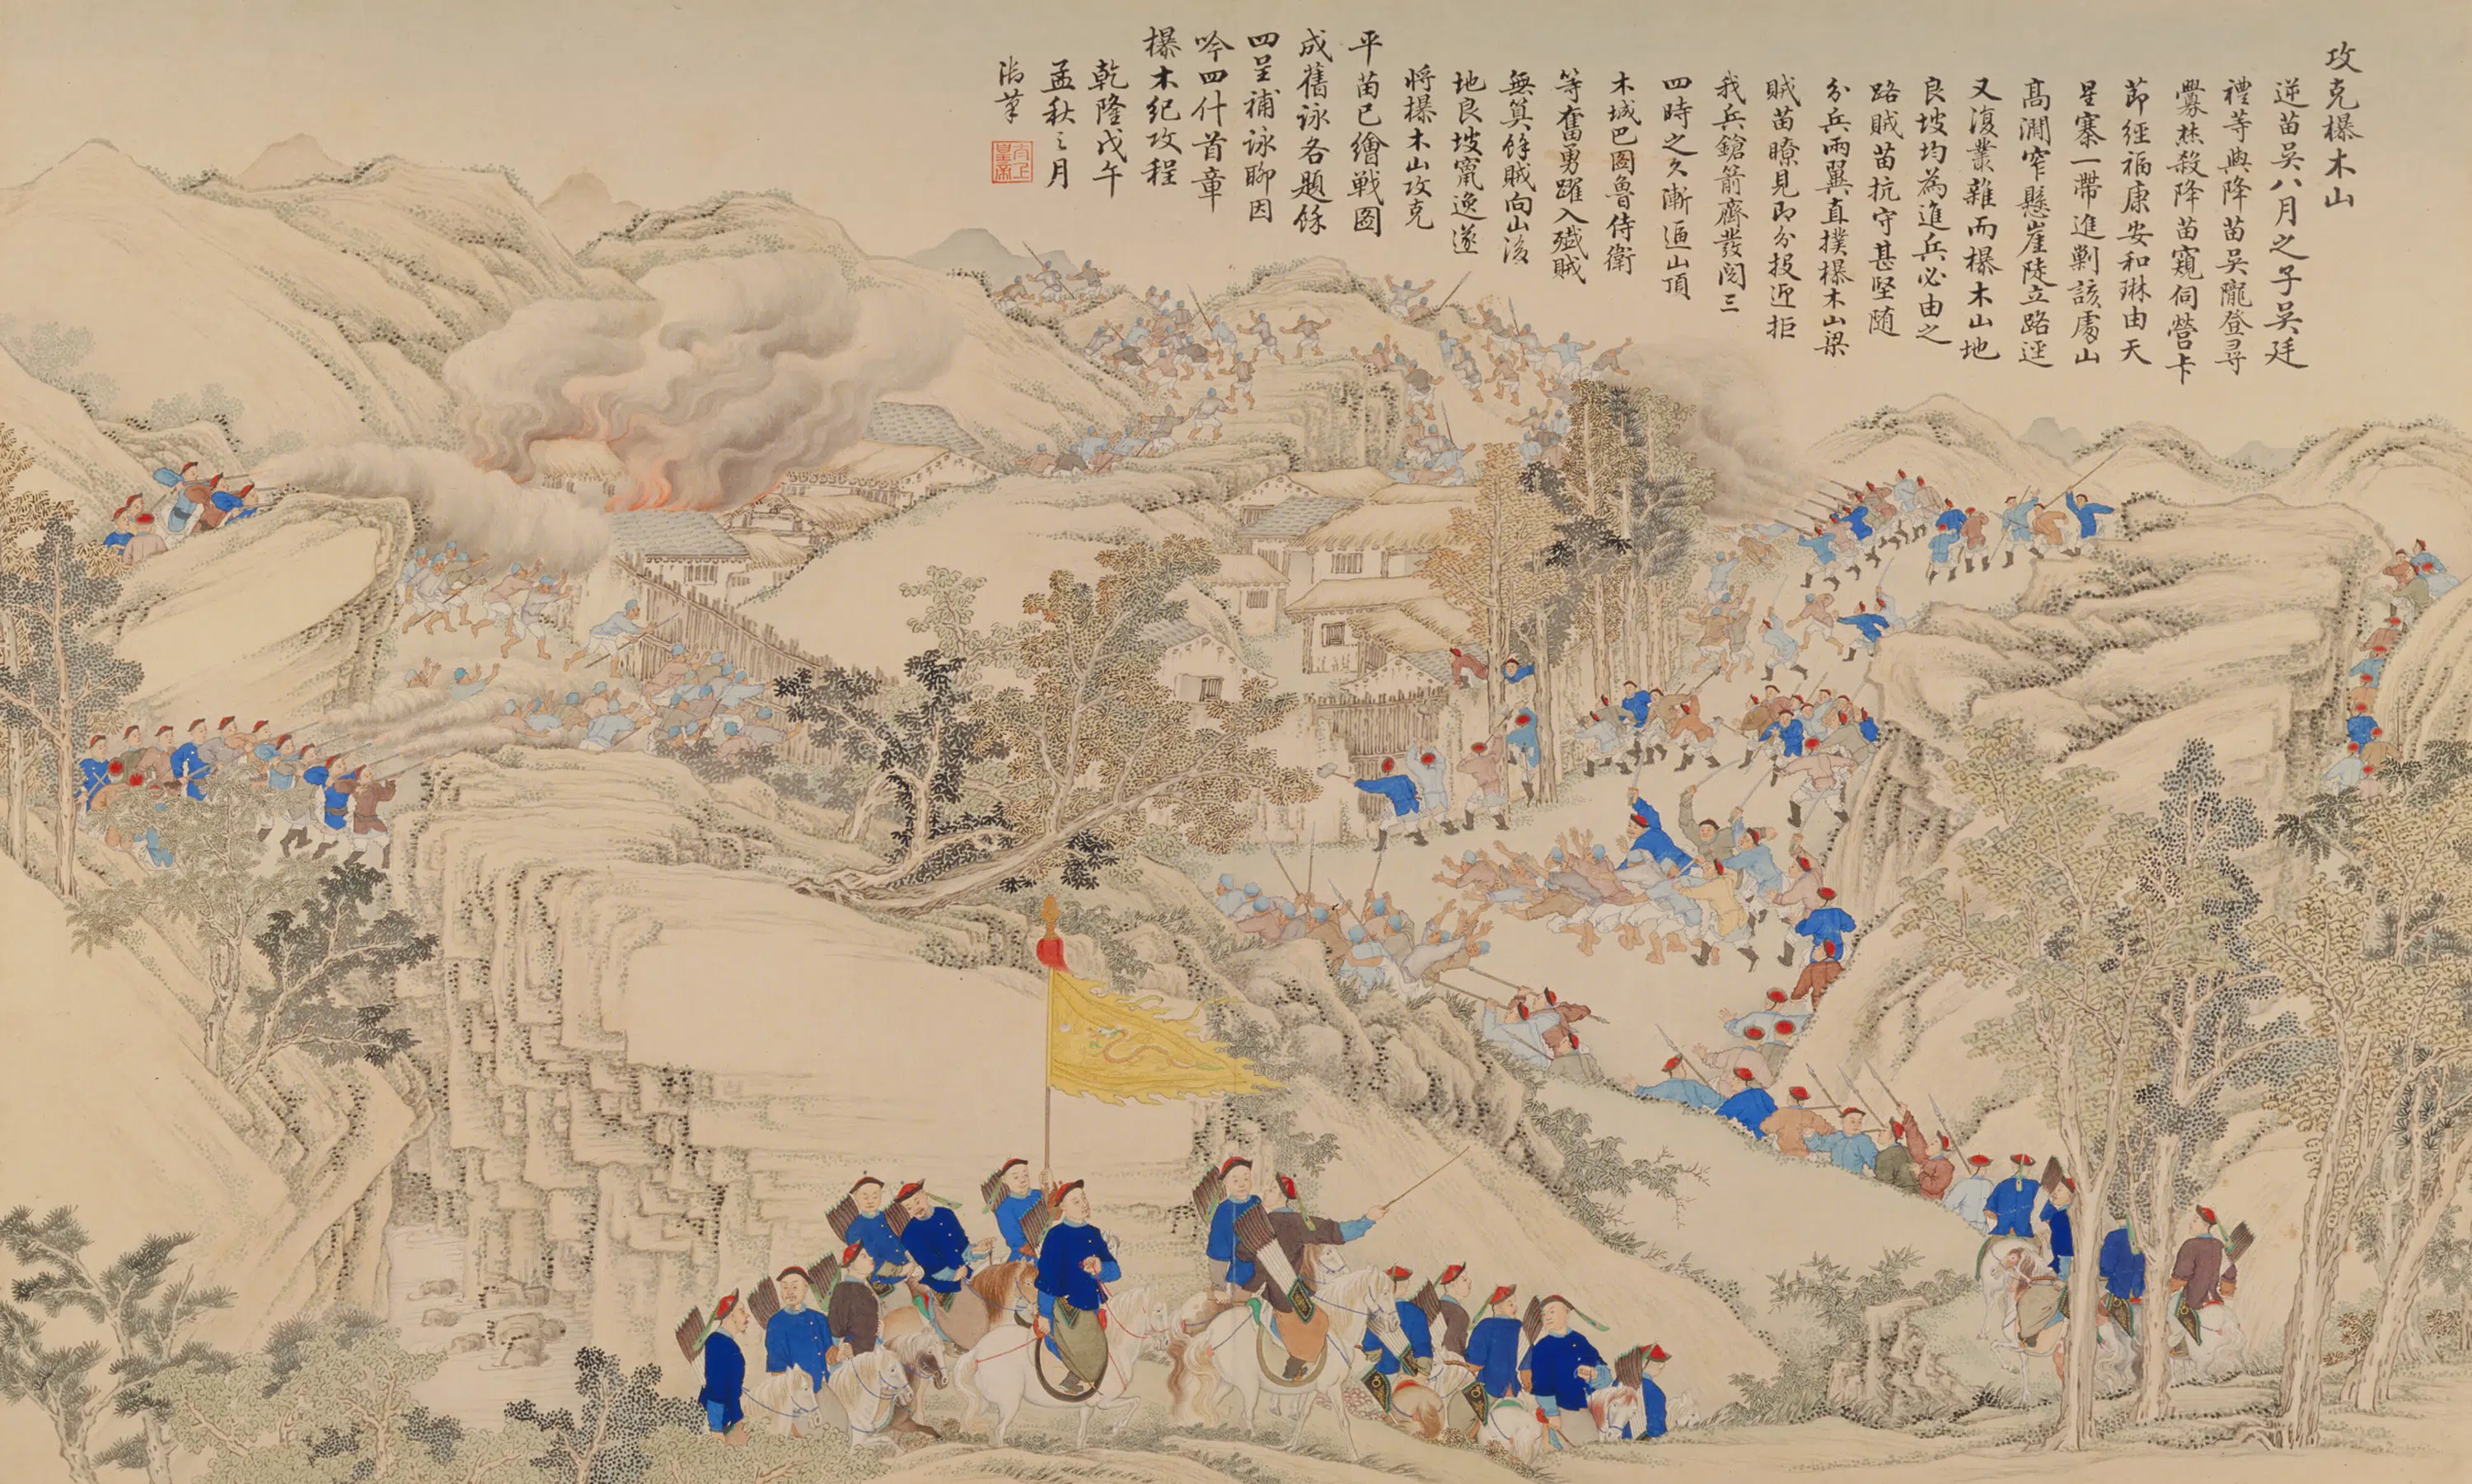 攻克㰚木山
逆苗吳八月之子吳廷
禮等與降苗吳隴登尋
釁焚殺降苗窺伺營卡
節經福康安和琳由天
星寨一帶進剿該處山
高澗窄懸崖陡立路逕
又復叢雜而㰚木山地
良坡均為進兵必由之
路賊苗抗守甚堅隨
分兵兩翼直撲㰚木山梁
賊苗瞭見即分投迎拒
我兵鎗箭齊發閱三
四時之久漸逼山頂
木城巴圖魯侍衛
等奮勇躍入殲賊
無算餘賊向山後
地良坡竄逸遂
將㰚木山攻克
平苗已繪戰圖
成舊詠各題餘
四呈補詠聊因
吟四什首章
㰚木紀攻程
乾隆戊午
孟秋之月
御筆
太上
皇帝